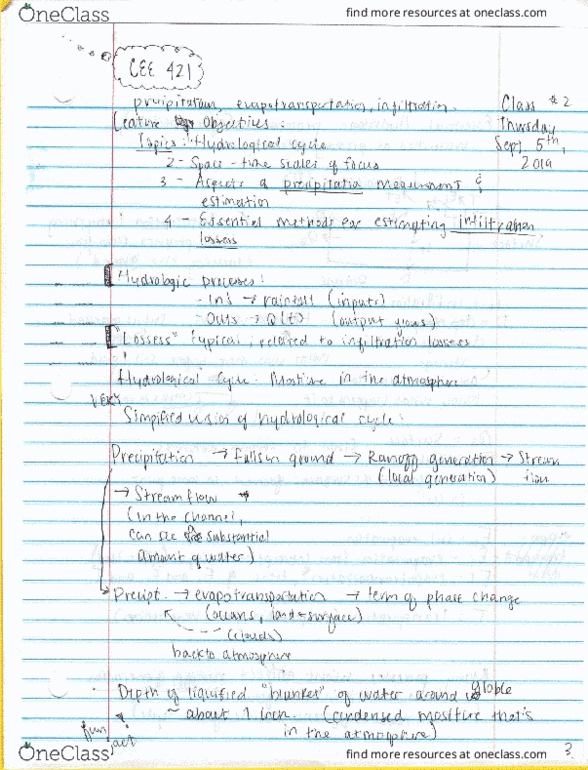 OneClass find more resources at oneclass.com
CEE 421
precipitation, evapotransportation, infiltration. Class #2
Lecture Objectives: Thursday
Topics: Hydrological cycle Sept. 5th,
2 - Space - time scales of focus 2019
3 - Aspects of precipitation measurement &
estimation
4 - Essential methods for estimating infiltration
losses
Hydrologic processes:
- Ins → rainfall (inputs)
- Outs → Q(t) (output flows)
"Lossess" typical, related to infiltration lossess
Hydrological Cycle - Moisture in the atmosphere
VERY
Simplified version of hydrological cycle:
Precipitation → falls on ground → Runoff generation → Stream
(local generation) flow
→ Stream flow
(in the channel,
can see substantial
amount of water)
Precipt. → evapotransportation → term of phase change
(oceans, land-surface)
(clouds)
back to atmosphere
Depth of liquified "blanket" of water around globe
~ about 1 inch. (condensed moisture that's
in the atmosphere)
fun fact
OneClass find more resources at oneclass.com 3